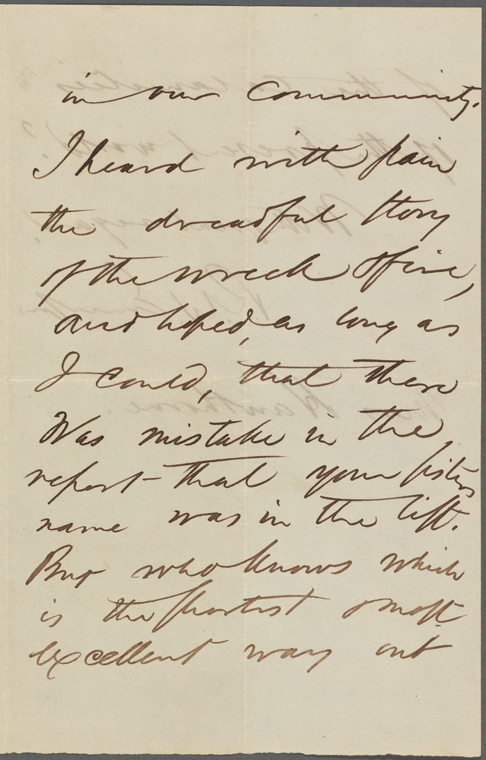 in our community.
I heard with pain
the dreadful story
of the wreck & fire,
and hoped, as long as
I could, that there
was mistake in the
report that your sister's
name was in the list.
But who knows which
is the shortest & most
excellent way out